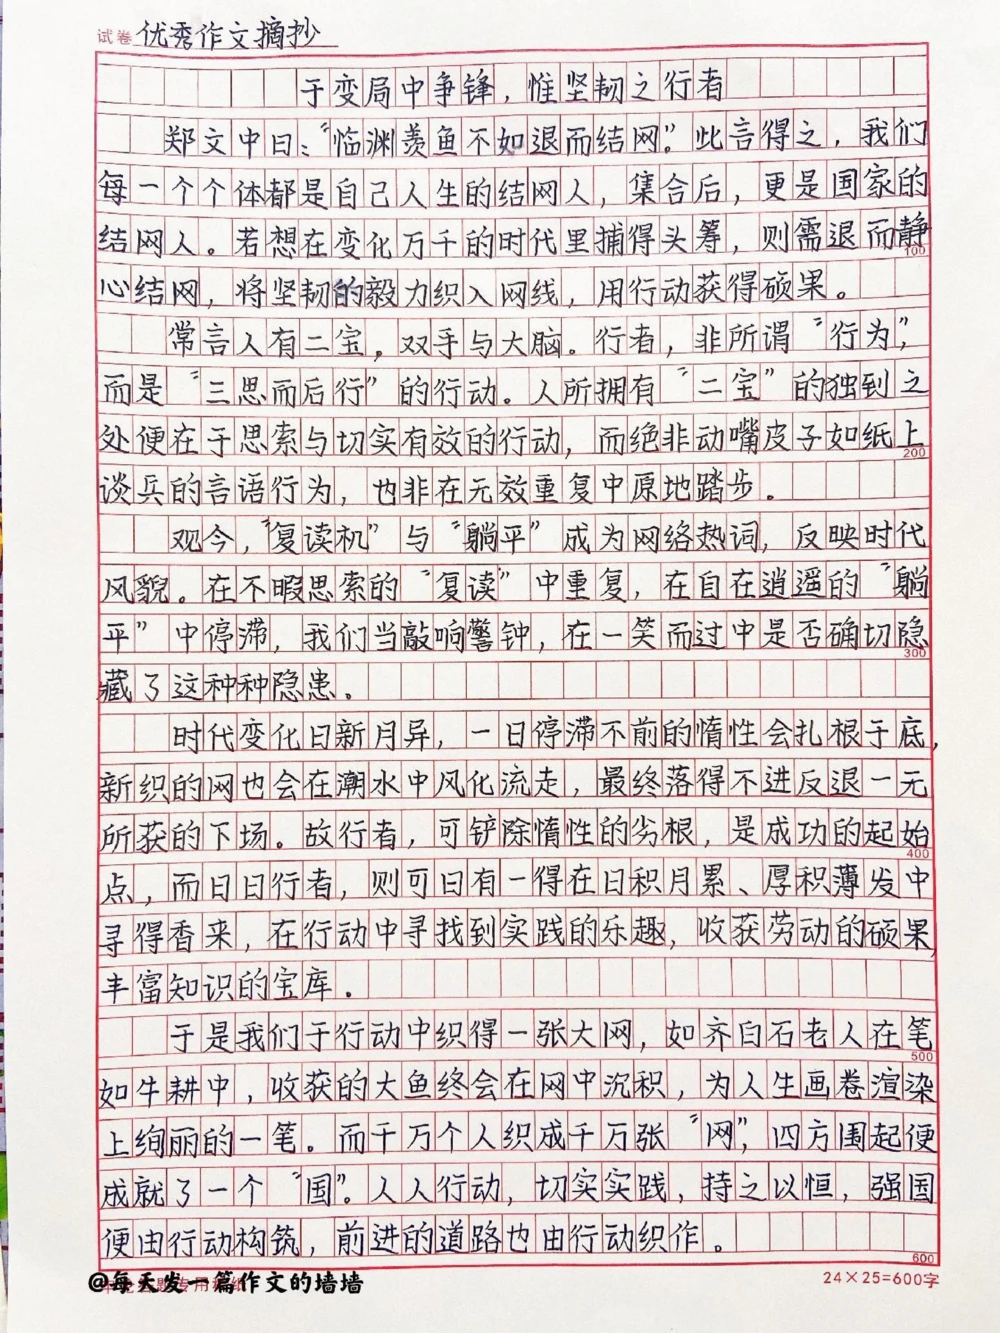 试卷 优秀作文摘抄
于变局中争锋，惟坚韧之行者
郑文中曰：“临渊羡鱼不如退而结网。”此言得之，我们
每一个个体都是自己人生的结网人，集合后，更是国家的
结网人。若想在变化万千的时代里捕得头筹，则需退而静
100
心结网，将坚韧的毅力织入网线，用行动获得硕果。
常言人有二宝，双手与大脑。行者，非所谓“行为”，
而是“三思而后行”的行动。人所拥有“二宝”的独到之
处便在于思索与切实有效的行动，而绝非动嘴皮子如纸上
200
谈兵的言语行为，也非在无效重复中原地踏步。
观今，“复读机”与“躺平”成为网络热词，反映时代
风貌。在不暇思索的“复读”中重复，在自在逍遥的“躺
平”中停滞，我们当敲响警钟，在一笑而过中是否确切隐
300
藏了这种种隐患。
时代变化日新月异，一日停滞不前的惰性会扎根于底，
新织的网也会在潮水中风化流走，最终落得不进反退一无
所获的下场。故行者，可铲除惰性的劣根，是成功的起始
400
点，而日日行者，则可日有一得在日积月累、厚积薄发中
寻得香来，在行动中寻找到实践的乐趣，收获劳动的硕果，
丰富知识的宝库。
于是我们于行动中织得一张大网，如齐白石老人在笔
500
如牛耕中，收获的大鱼终会在网中沉积，为人生画卷渲染
上绚丽的一笔。而千万个人织成千万张“网”，四方围起便
成就了一个“国”。人人行动，切实实践，持之以恒，强国
便由行动构筑，前进的道路也由行动织作。
600
@每天发一篇作文的墙墙
24×25=600字